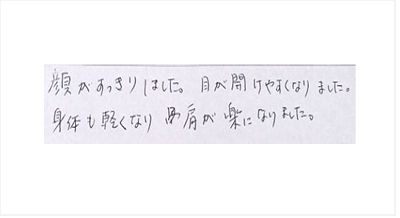 顔がすっきりしました。目が開けやすくなりました。
身体も軽くなり 肩が楽になりました。